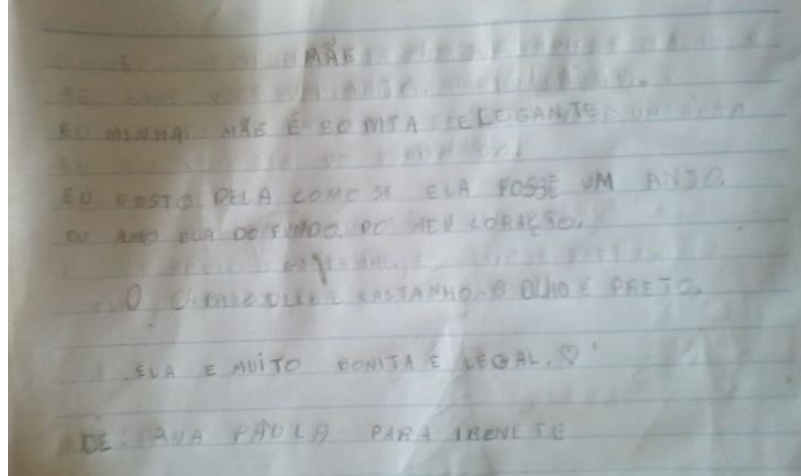 MÃE
MINHA MÃE É BONITA E ELEGANTE
EU GOSTO DELA COMO SE ELA FOSSE UM ANJO
EU AMO ELA DO FUNDO DO MEU CORAÇÃO.
O CABELO DELA E CASTANHO O OLHO E PRETO.
ELA E MUITO BONITA E LEGAL. ♡
DE: ANA PAULA PARA IRENETE